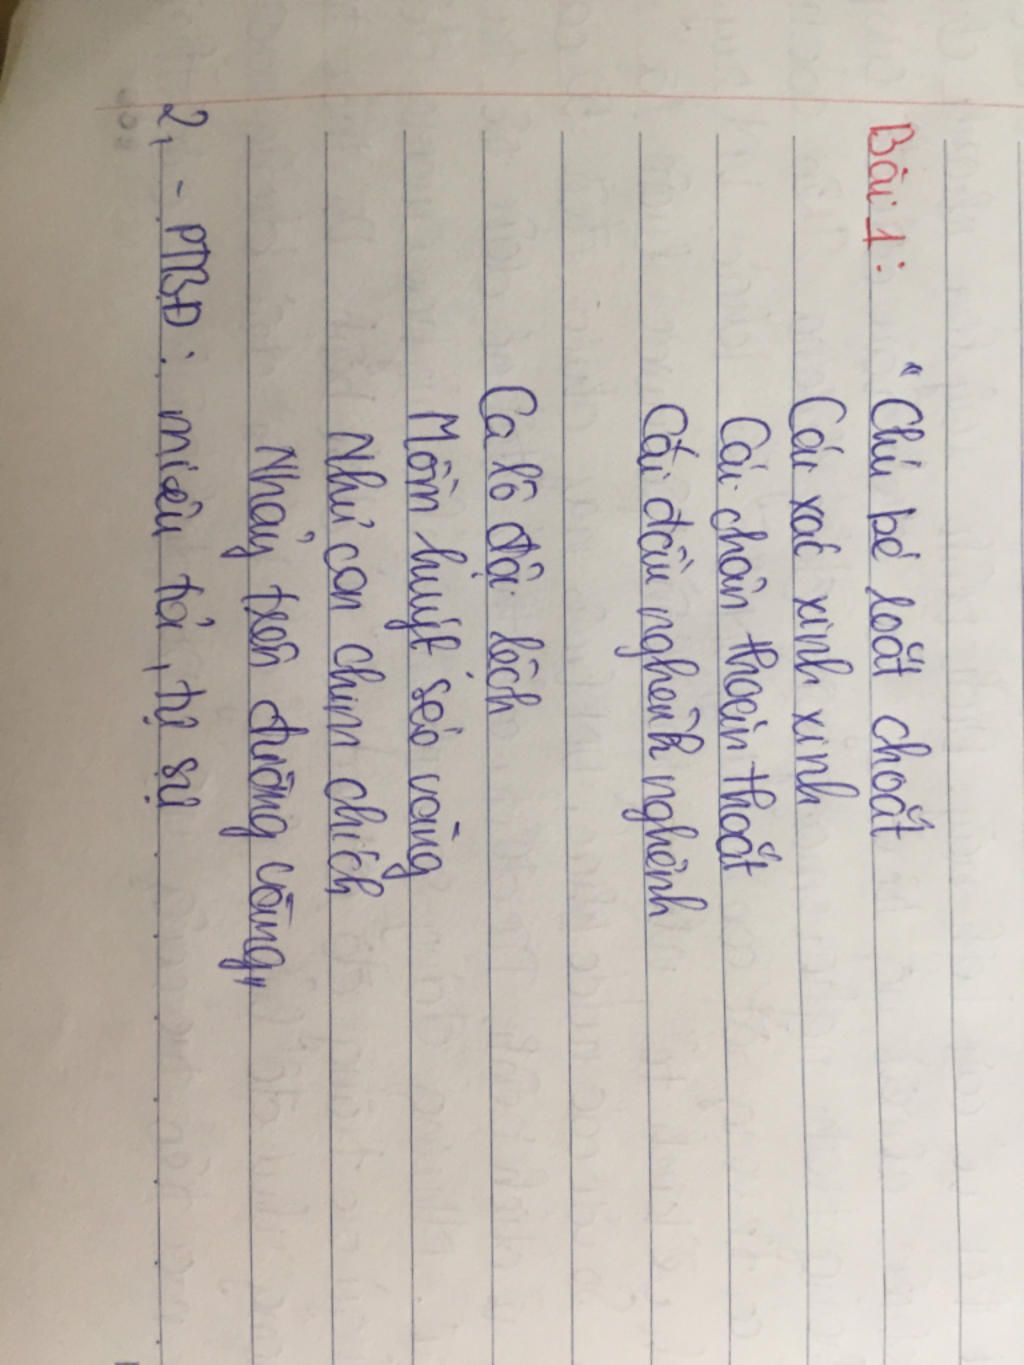 Bài 1:
"Chú bé loắt choắt
Cái xắc xinh xinh
Cái chân thoăn thoắt
Cái đầu nghênh nghênh
Ca lô đội lệch
Mồm huýt sáo vàng
Như con chim chích
Nhảy trên đường vàng"
2, - PTBĐ: miêu tả, tự sự